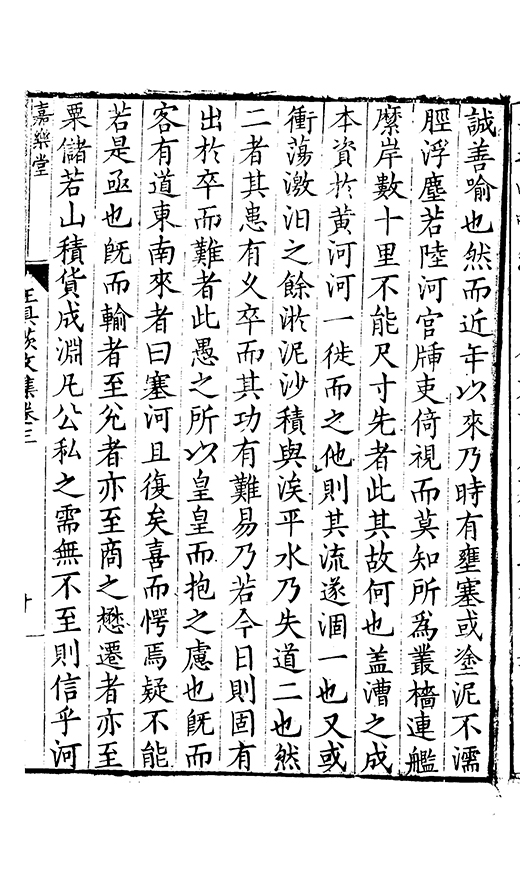 誠善喻也然而近年以來乃時有壅塞或塗泥不濡
脛浮塵若陸河官𤗉吏倚視而莫知所為叢檣連艦
縻岸數十里不能尺寸先者此其故何也蓋漕之成
本資於黄河河一徙而之他則其流遂涸一也又或
衝蕩激汩之餘淤泥沙積與涘平水乃失道二也然
二者其患有乂卒而其功有難易乃若今日則固有
出於卒而難者此愚之所以皇皇而抱之慮也旣而
客有道東南來者曰塞河且復矣喜而愕焉疑不能
若是亟也旣而輸者至兊者亦至商之懋遷者亦至
粟儲若山積貨成淵凡公私之需無不至則信乎河
嘉樂堂
文集卷三
十